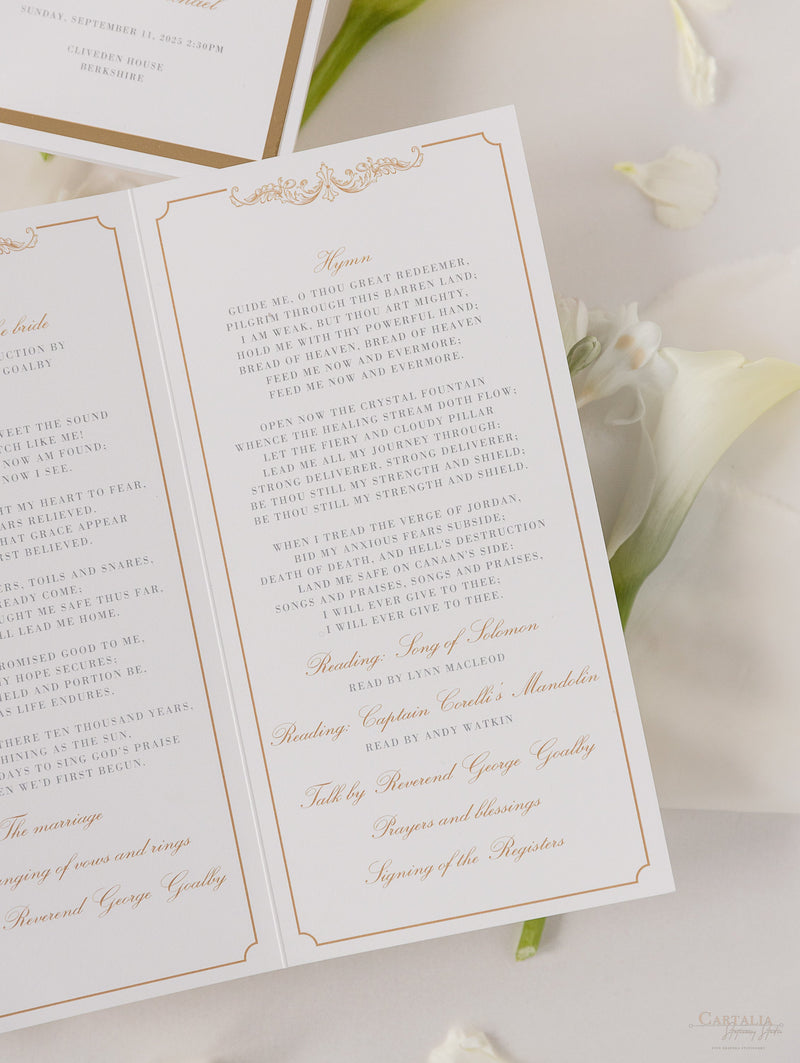 SUNDAY, SEPTEMBER 11, 2025 2:30PM
CLIVEDEN HOUSE
BERKSHIRE
bride
UCTION BY
GOALBY
WEET THE SOUND
TCH LIKE ME!
NOW AM FOUND;
NOW I SEE.
HT MY HEART TO FEAR,
ARS RELIEVED.
THAT GRACE APPEAR
RST BELIEVED.
ERS, TOILS AND SNARES,
READY COME;
UGHT ME SAFE THUS FAR,
LL LEAD ME HOME.
ROMISED GOOD TO ME,
Y HOPE SECURES;
IELD AND PORTION BE,
AS LIFE ENDURES.
HERE TEN THOUSAND YEARS,
HINING AS THE SUN,
DAYS TO SING GOD'S PRAISE
EN WE'D FIRST BEGUN.
The marriage
anging of vows and rings
Reverend George Goalby
Hymn
GUIDE ME, O THOU GREAT REDEEMER,
PILGRIM THROUGH THIS BARREN LAND;
I AM WEAK, BUT THOU ART MIGHTY,
HOLD ME WITH THY POWERFUL HAND;
BREAD OF HEAVEN, BREAD OF HEAVEN
FEED ME NOW AND EVERMORE;
FEED ME NOW AND EVERMORE.
OPEN NOW THE CRYSTAL FOUNTAIN
WHENCE THE HEALING STREAM DOTH FLOW;
LET THE FIERY AND CLOUDY PILLAR
LEAD ME ALL MY JOURNEY THROUGH:
STRONG DELIVERER, STRONG DELIVERER;
BE THOU STILL MY STRENGTH AND SHIELD;
BE THOU STILL MY STRENGTH AND SHIELD.
WHEN I TREAD THE VERGE OF JORDAN,
BID MY ANXIOUS FEARS SUBSIDE;
DEATH OF DEATH, AND HELL'S DESTRUCTION
LAND ME SAFE ON CANAAN'S SIDE:
SONGS AND PRAISES, SONGS AND PRAISES,
I WILL EVER GIVE TO THEE;
I WILL EVER GIVE TO THEE.
Reading: Song of Solomon
READ BY LYNN MACLEOD
Reading: Captain Corelli's Mandolin
READ BY ANDY WATKIN
Talk by Reverend George Goalby
Prayers and blessings
Signing of the Registers
CARTALIA